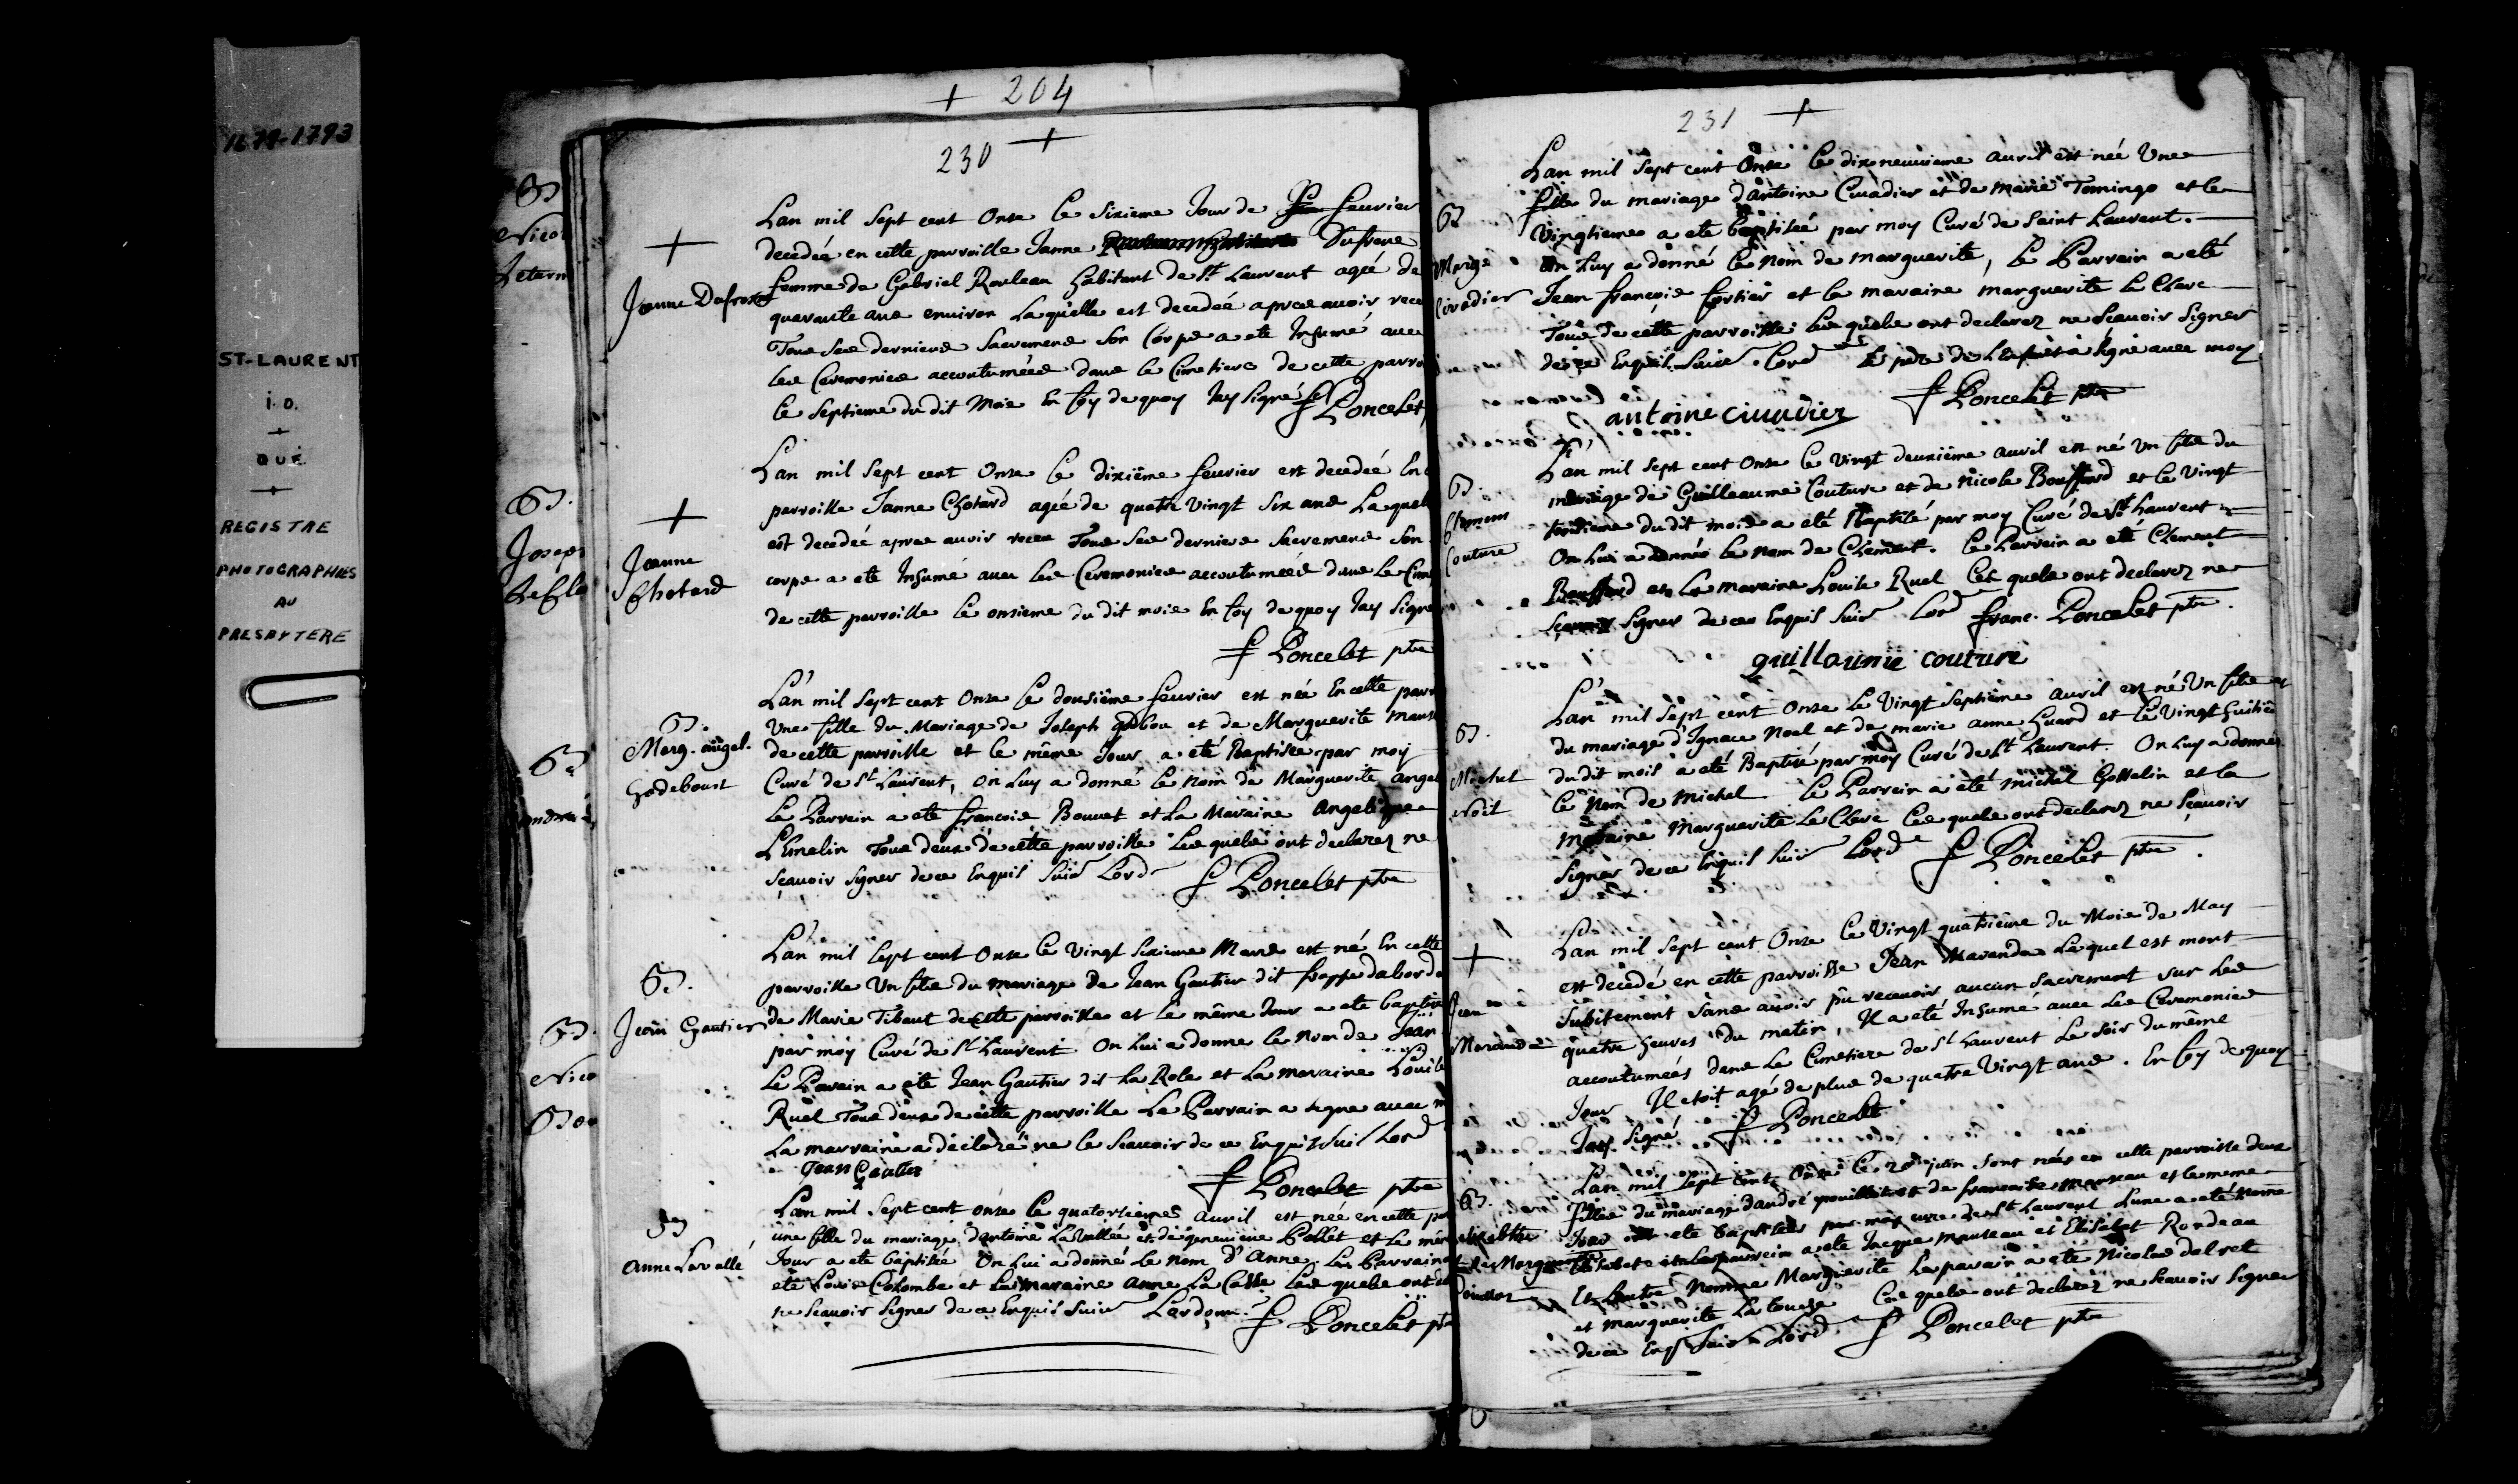 1679-1793
ST-LAURENT
i.o.
QUÉ.
REGISTRE
PHOTOGRAPHIES
AU
PRESBYTERE
+ 204
230 +
Lan mil Sept cent Onse le Sixieme Jour de feurier
decedée en cette parroisse Janne Dufrene
+
Jeanne Dufrene
femme de Gabriel Rouleau habitant de St Laurent agée de
quarante ans enuiron Laquelle est decedée apres auoir rece
Tous Ses derniers Sacremens Son Corps a ete Inhumé auec
les Ceremonies accoutumées dans le Cimetiere de cette parro
le Septieme du dit Mois En foy de quoy Jay Signé f Poncelet
Lan mil Sept cent Onse le dixiême feurier est decedée En
parroisse Janne Chotard agée de quatre Vingt Six ans Laquel
+
Jeanne
Chotard
est decedée apres auoir receu Tous Ses derniers Sacremens Son
corps a ete Inhumé auec les Ceremonies accoutumées dans le Cime
de cette parroisse le onsieme du dit mois En foy de quoy Jay Signé
f Poncelet ptre
L'an mil Sept cent Onse le dousiême feurier est née En cette parr
B.
Marg. angel.
Godebout
Une fille du Mariage de Joseph gdbou et de Marguerite Mans
de cette parroisse et le même Jour a eté Baptisée par moy
Curé de St Laurent, on Luy a donné le nom de Marguerite angel
Le Parrain a eté francois Bouuet et La Maraine Angelique
L'Emelin Tous deux de cette parroisse Lesquels ont declarez ne
sçauoir signer de ce Enquis Suiv Lord f Poncelet ptre
L'an mil Sept cent Onse le Vingt Sixieme Mars est né En cette
B.
Jean Gautier
parroisse Un fils du mariage de Jean Gautier dit frappe dabord
de Marie Tibaut de cette parroisse et le même Jour a ete baptise
par moy Curé de St Laurent. On Lui a donne le nom de Jean
Le Parain a eté Jean Gautier dit La Role et La maraine Louise
Ruel Tous deux de cette parroisse Le Parrain a signe auec m
La marraine a declaré ne le Scauoir de ce Enquis Suiv Lord
Jean Gautier
f Poncelet ptre
Lan mil Sept cent onse le quatorsieme auril est née en cette par
B
Anne Lavallé
une fille du mariage dantoine Lavallée et de geneuieue Pollet et le mem
Jour a ete baptisée On Lui a donné le nom d'Anne, Le Parrain
eté Louis Colombe et La maraine Anne La Casse Lesquels ont de
ne Scauoir signer de ce Enquis suiv Lordonn. f Poncelet ptre
231 +
Lan mil Sept cent Onse le dix neuuieme auril est née Une
B
Marge
Ciuadier
fille du mariage dantoine Ciuadier et de marie Tomingo et le
Vingtieme a ete baptisée par moy Curé de Saint Laurent.
On Luy a donné le nom de marguerite, Le Parrain a eté
Jean francois fortier et la maraine marguerite le Clerc
Tous de cette parroisse Lesquels ont declarez ne Scauoir Signer
de ce Enquis Suiv Lord Le pere de L'enfant a signé auec moy
antoine ciuadier f Poncelet ptre
L'an mil Sept cent Onse le Vingt deuxiême auril est né Un fils du
B.
Clement
Couture
mariage de Guilleaume Couture et de Nicole Bouffard et le Vingt
troisieme du dit mois a eté Baptisé par moy Curé de St Laurent
On Lui a donné le nom de Clement. Le Parrain a eté Clement
Bouffard et La maraine Louise Ruel Lesquels ont declarez ne
Sçauoir Signer de ce Enquis Suiv Lord franc. Poncelet ptre.
guillaume couture
L'an mil Sept cent Onse Le Vingt Septiême auril est né Un fils
B.
Michel
Noël
du mariage d'Ignace Noel et de marie anne huard et le Vingt huitie
du dit mois a eté Baptisé par moy Curé de St Laurent. On Luy a donné
le Nom de Michel Le Parrain a eté michel Gosselin et la
maraine Marguerite Le Clerc Lesquels ont declarez ne Sçauoir
Signer de ce Enquis Suiv Lord f Poncelet ptre.
Lan mil Sept cent Onse le Vingt quatriême du Mois de May
+
Jean
Maranda
est decedé en cette parroisse Jean Maranda Lequel est mort
Subitement Sans auoir pu receuoir aucun Sacrement sur les
quatre heures du matin, Il a eté Inhumé auec les Ceremonies
accoutumées dans Le Cimetiere de St Laurent Le Soir du même
Jour Il etoit agé de plus de quatre Vingt ans. En foy de quoy
Jay Signé f Poncelet
Lan mil Sept cent Onse le 20 juin sont nées en cette parroisse deux
B.
elisabethe
et Marg
Pouillot
filles du mariage dandré pouillot et de francoise manseau et le meme
Jour ont ete baptisées par moy cure de St Laurent Lune a eté nomé
Elisabet et Le parrein a ete Jacque manseau et Elisabet Rondeau
Et Lautre Nommé Marguerite Le parain a ete Nicolas
et marguerite La touche Lesquels ont declarez ne Scauoir Signer
de ce Enq Suiv Lord. f Poncelet ptre